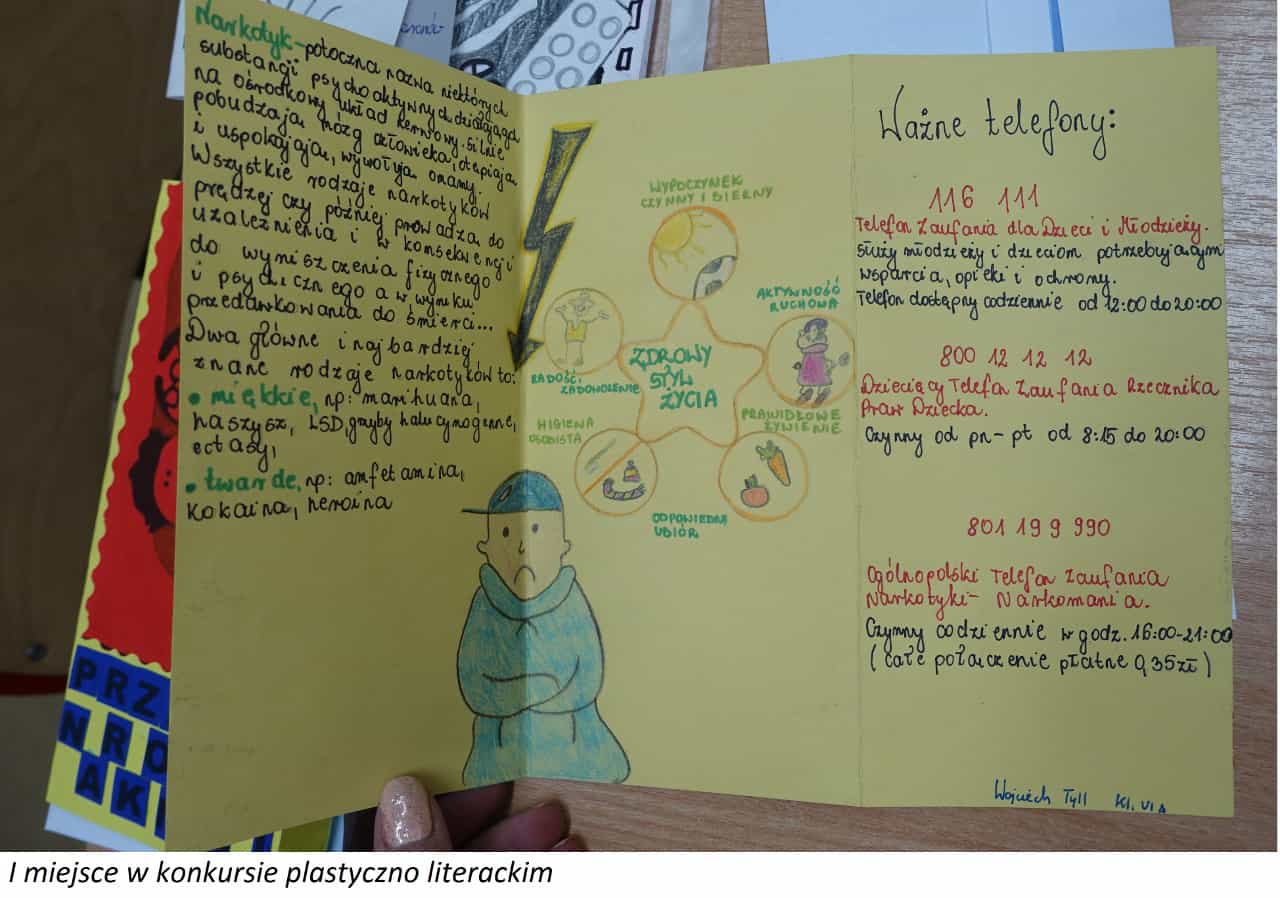 Narkotyk-potoczna nazwa niektórych
substancji psychoaktywnych działających
na ośrodkowy układ nerwowy. Silnie
pobudzają mózg człowieka, otępiają
i uspokajają, wywołują omamy.
Wszystkie rodzaje narkotyków
prędzej czy później prowadzą do
uzależnienia i w konsekwencji
do wyniszczenia fizycznego
i psychicznego a w wyniku
przedawkowania do śmierci...
Dwa główne i najbardziej
znane rodzaje narkotyków to:
• miękkie, np: marihuana,
haszysz, LSD, grzyby halucynogenne,
ectasy,
• twarde, np: amfetamina,
kokaina, heroina
WYPOCZYNEK
CZYNNY I BIERNY
AKTYWNOŚĆ
RUCHOWA
ZDROWY
STYL
ŻYCIA
RADOŚĆ,
ZADOWOLENIE
HIGIENA
OSOBISTA
PRAWIDŁOWE
ŻYWIENIE
ODPOWIEDNI
UBIÓR
Ważne telefony:
116 111
Telefon Zaufania dla Dzieci i Młodzieży.
Służy młodzieży i dzieciom potrzebującym
wsparcia, opieki i ochrony.
Telefon dostępny codziennie od 12:00 do 20:00
800 12 12 12
Dziecięcy Telefon Zaufania Rzecznika
Praw Dziecka.
Czynny od pn-pt od 8:15 do 20:00
801 199 990
Ogólnopolski Telefon Zaufania
Narkotyki- Narkomania.
Czynny codziennie w godz. 16:00-21:00
(całe połączenie płatne 0,35zł)
Wojciech Tyll Kl. VIA
PRZ
NRO
AK
I miejsce w konkursie plastyczno literackim